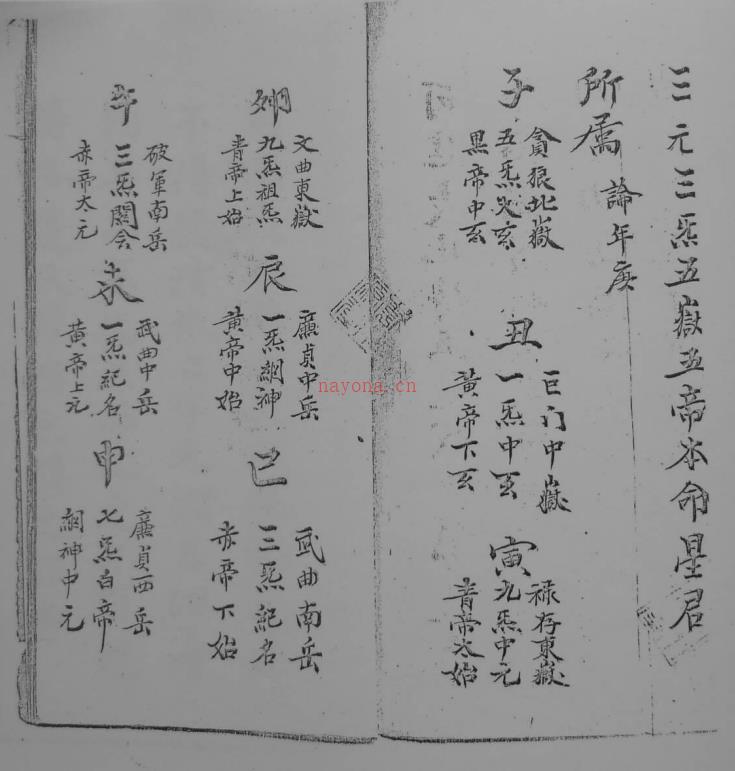 三元三炁五嶽五帝本命星君
所屬 論年庚
子
貪狼北嶽
五炁 玄
黑帝中玄
丑
巨门中嶽
一炁中玄
黄帝下玄
寅
禄存東嶽
九炁中元
青帝太始
卯
文曲東嶽
九炁祖炁
青帝上始
辰
廉貞中岳
一炁 神
黄帝中始
巳
武曲南岳
三炁紀名
赤帝下始
午
破軍南岳
三炁 合
赤帝太元
未
武曲中岳
一炁紀名
黄帝上元
申
廉貞西岳
七炁白帝
神中元
nayona.cn